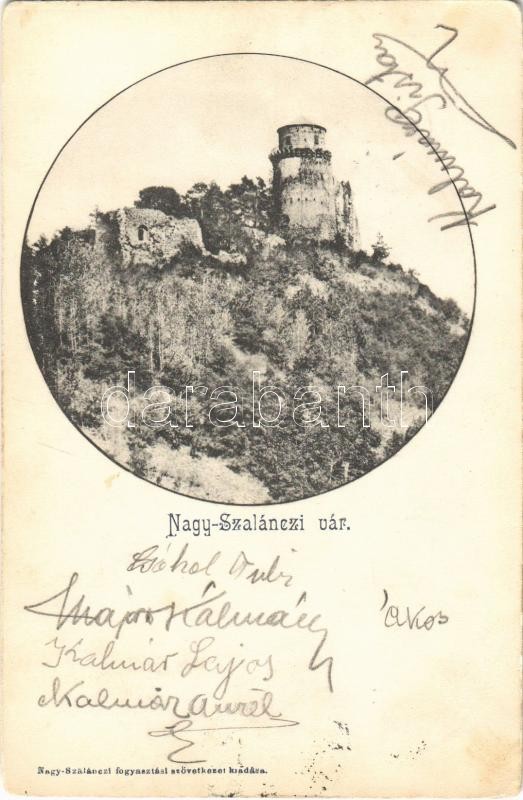 Kalmár
darabanth
Nagy-Szalánczi vár.
Kálmán
Ákos
Kalmár Lajos
Kalmár Aurél
Nagy-Szalánczi fogyasztási szövetkezet kiadása.